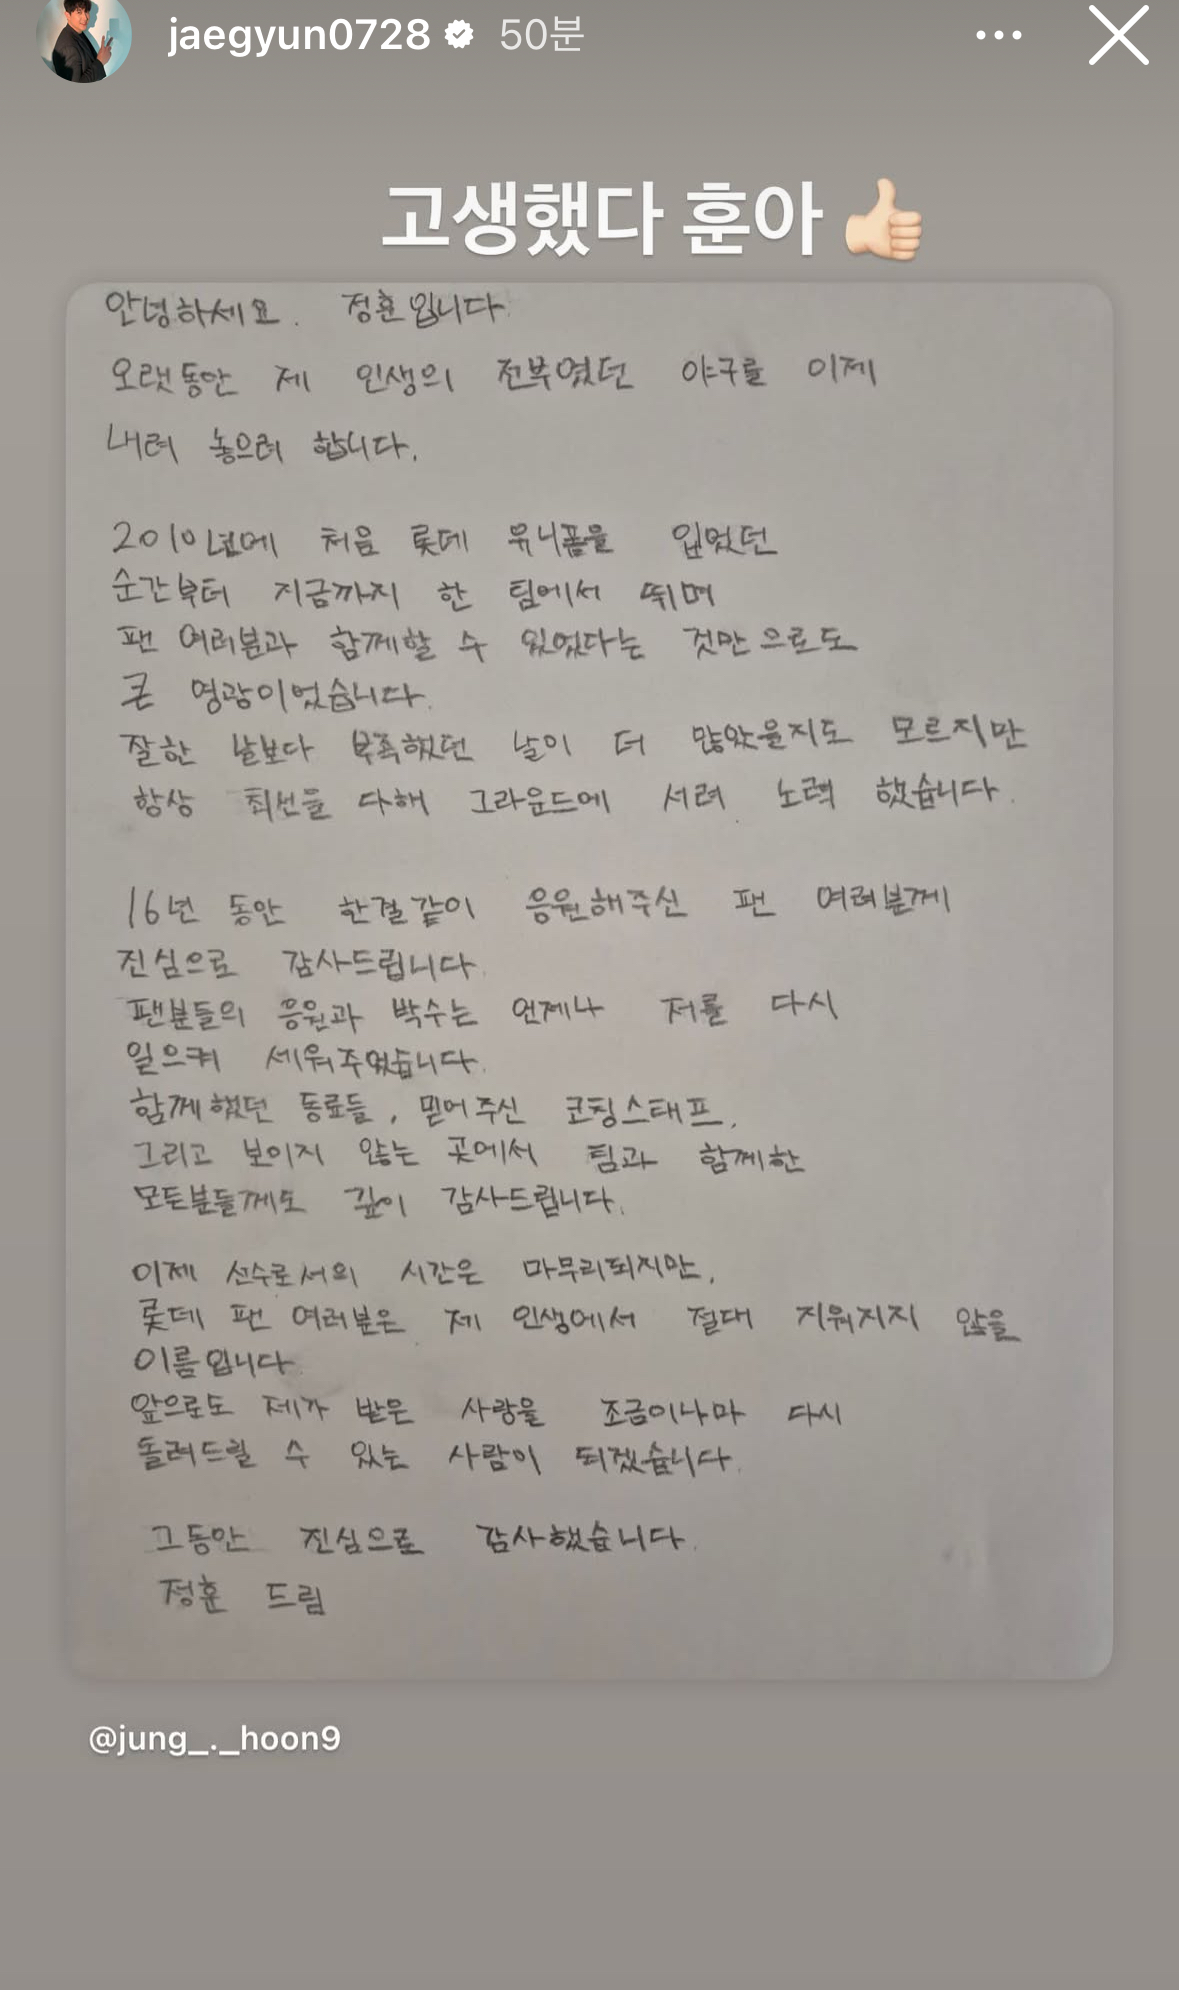 jaegyun0728 50분
고생했다 훈아 👍🏻
안녕하세요. 정훈입니다.
오랫동안 제 인생의 전부였던 야구를 이제
내려 놓으려 합니다.
2010년에 처음 롯데 유니폼을 입었던
순간부터 지금까지 한 팀에서 뛰며
팬 여러분과 함께할 수 있었다는 것만으로도
큰 영광이었습니다.
잘한 날보다 부족했던 날이 더 많았을지도 모르지만
항상 최선을 다해 그라운드에 서려 노력 했습니다.
16년 동안 한결같이 응원해주신 팬 여러분께
진심으로 감사드립니다.
팬분들의 응원과 박수는 언제나 저를 다시
일으켜 세워주었습니다.
함께했던 동료들, 믿어주신 코칭스태프,
그리고 보이지 않는 곳에서 팀과 함께한
모든분들께도 깊이 감사드립니다.
이제 선수로서의 시간은 마무리되지만,
롯데 팬 여러분은 제 인생에서 절대 지워지지 않을
이름입니다
앞으로도 제가 받은 사랑을 조금이나마 다시
돌려드릴 수 있는 사람이 되겠습니다.
그동안 진심으로 감사했습니다.
정훈 드림
@jung_._hoon9